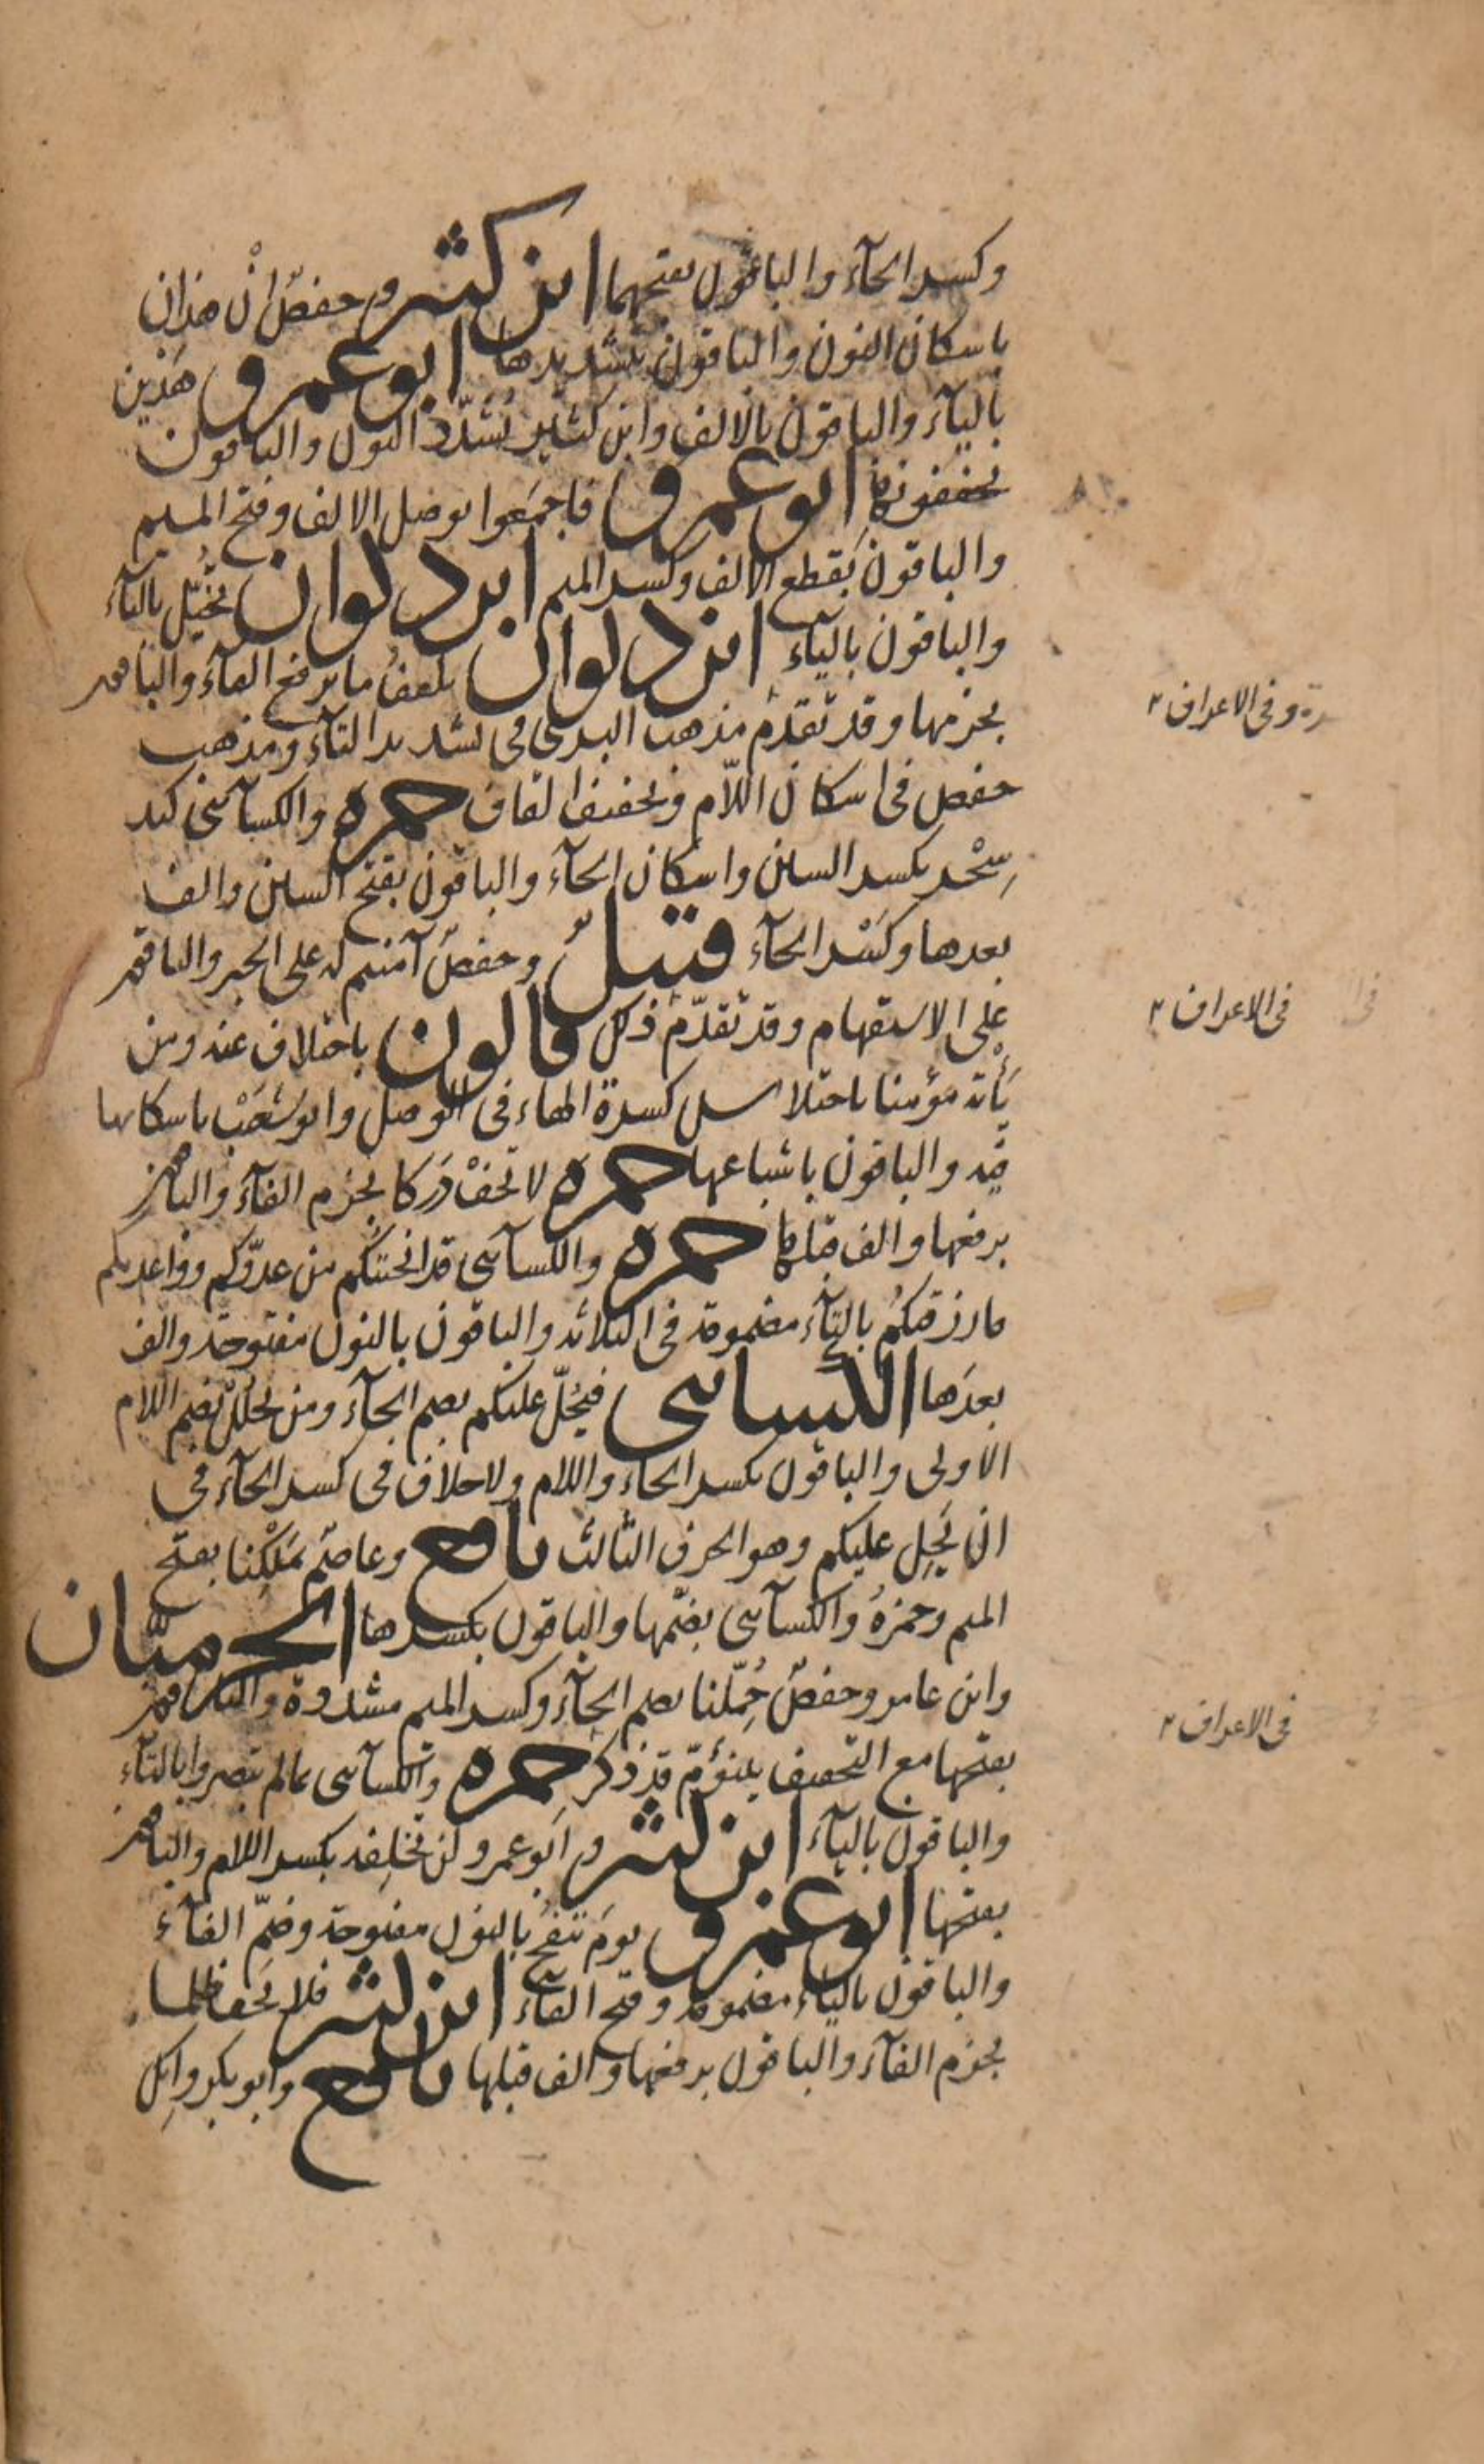 وكسر الحآء والباقون بفتحهما ابن كثير وحفصٌ انْ هذان
باسكان النون والباقون بتشديدها ابو عمرو هذَيْن
باليآء والباقون بالالف وابن كثير يُشدّد النون والباقون
يخففونها ابو عمرو فاجمَعوا بوصل الالف وفتح الميم
والباقون بقطع الالف وكسر الميم ابن ذكوان تُخيّل بالتآء
والباقون باليآء ابن ذكوان تلقفُ ما برفع الفآء والباقون
بجزمها وقد تقدّم مذهب البزى فى تشديد التآء ومذهب
حفص فى اسكان اللّام وتخفيف القاف حمزه والكسآئى كيد
سِحْر بكسر السين واسكان الحآء والباقون بفتح السين والف
بعدها وكَسْر الحآء قنبلٌ وحفصٌ آمنتم له على الخبر والباقون
على الاستفهام وقد تقدّم ذكر قالون باختلاف عنه ومن
يَأته مؤمنا باختلاس كسرة الهاء فى الوصل وابو شعَيْب باسكانها
فيه والباقون باشباعها حمزه لا تخفْ دَركا بجزم الفآء والباقون
برفعها والف قبلها حمزه والكسآئى قد انجيتُكم من عدوّكم وواعدتكم
ما رزقتكُم بالتآء مضمومة فى الثلاثه والباقون بالنون مفتوحة والف
بعدَها الكسائى فيحُلّ عليكم بضم الحآء ومن يحلُل بضم اللام
الاولى والباقون بكسر الحاء واللام ولا خلاف فى كسر الحآء فى
ان يَحِل عليكم وهو الحرف الثالث نافع وعاصم بمَلْكِنا بفتح
الميم وحمزهُ والكسآئى بضمّها والباقون بكسرها الحرميّان
وابن عامر وحفصٌ حُمِّلنا بضم الحآء وكسر الميم مشددة والباقون
بفتحها مع التخفيف يبنؤمّ قد ذكر حمزه والكسآئى بما لم تبصروا بالتآء
والباقون باليآء ابن كثير وابو عمرو لن تخلِفه بكسر اللام والباقون
بفتحها ابو عمرو يومَ ننفخُ بالنون مفتوحة وضمّ الفآء
والباقون باليآء مضمومة وفتح الفآء ابن كثير فلا يَخف ظلما
بجزم الفآء والباقون برفعها والف قبلها نافع وابو بكر وانك
وفى الاعراف
فى الاعراف
فى الاعراف